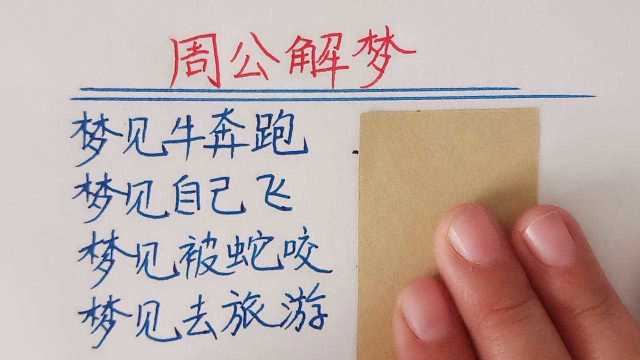 周公解梦
梦见牛奔跑
梦见自己飞
梦见被蛇咬
梦见去旅游